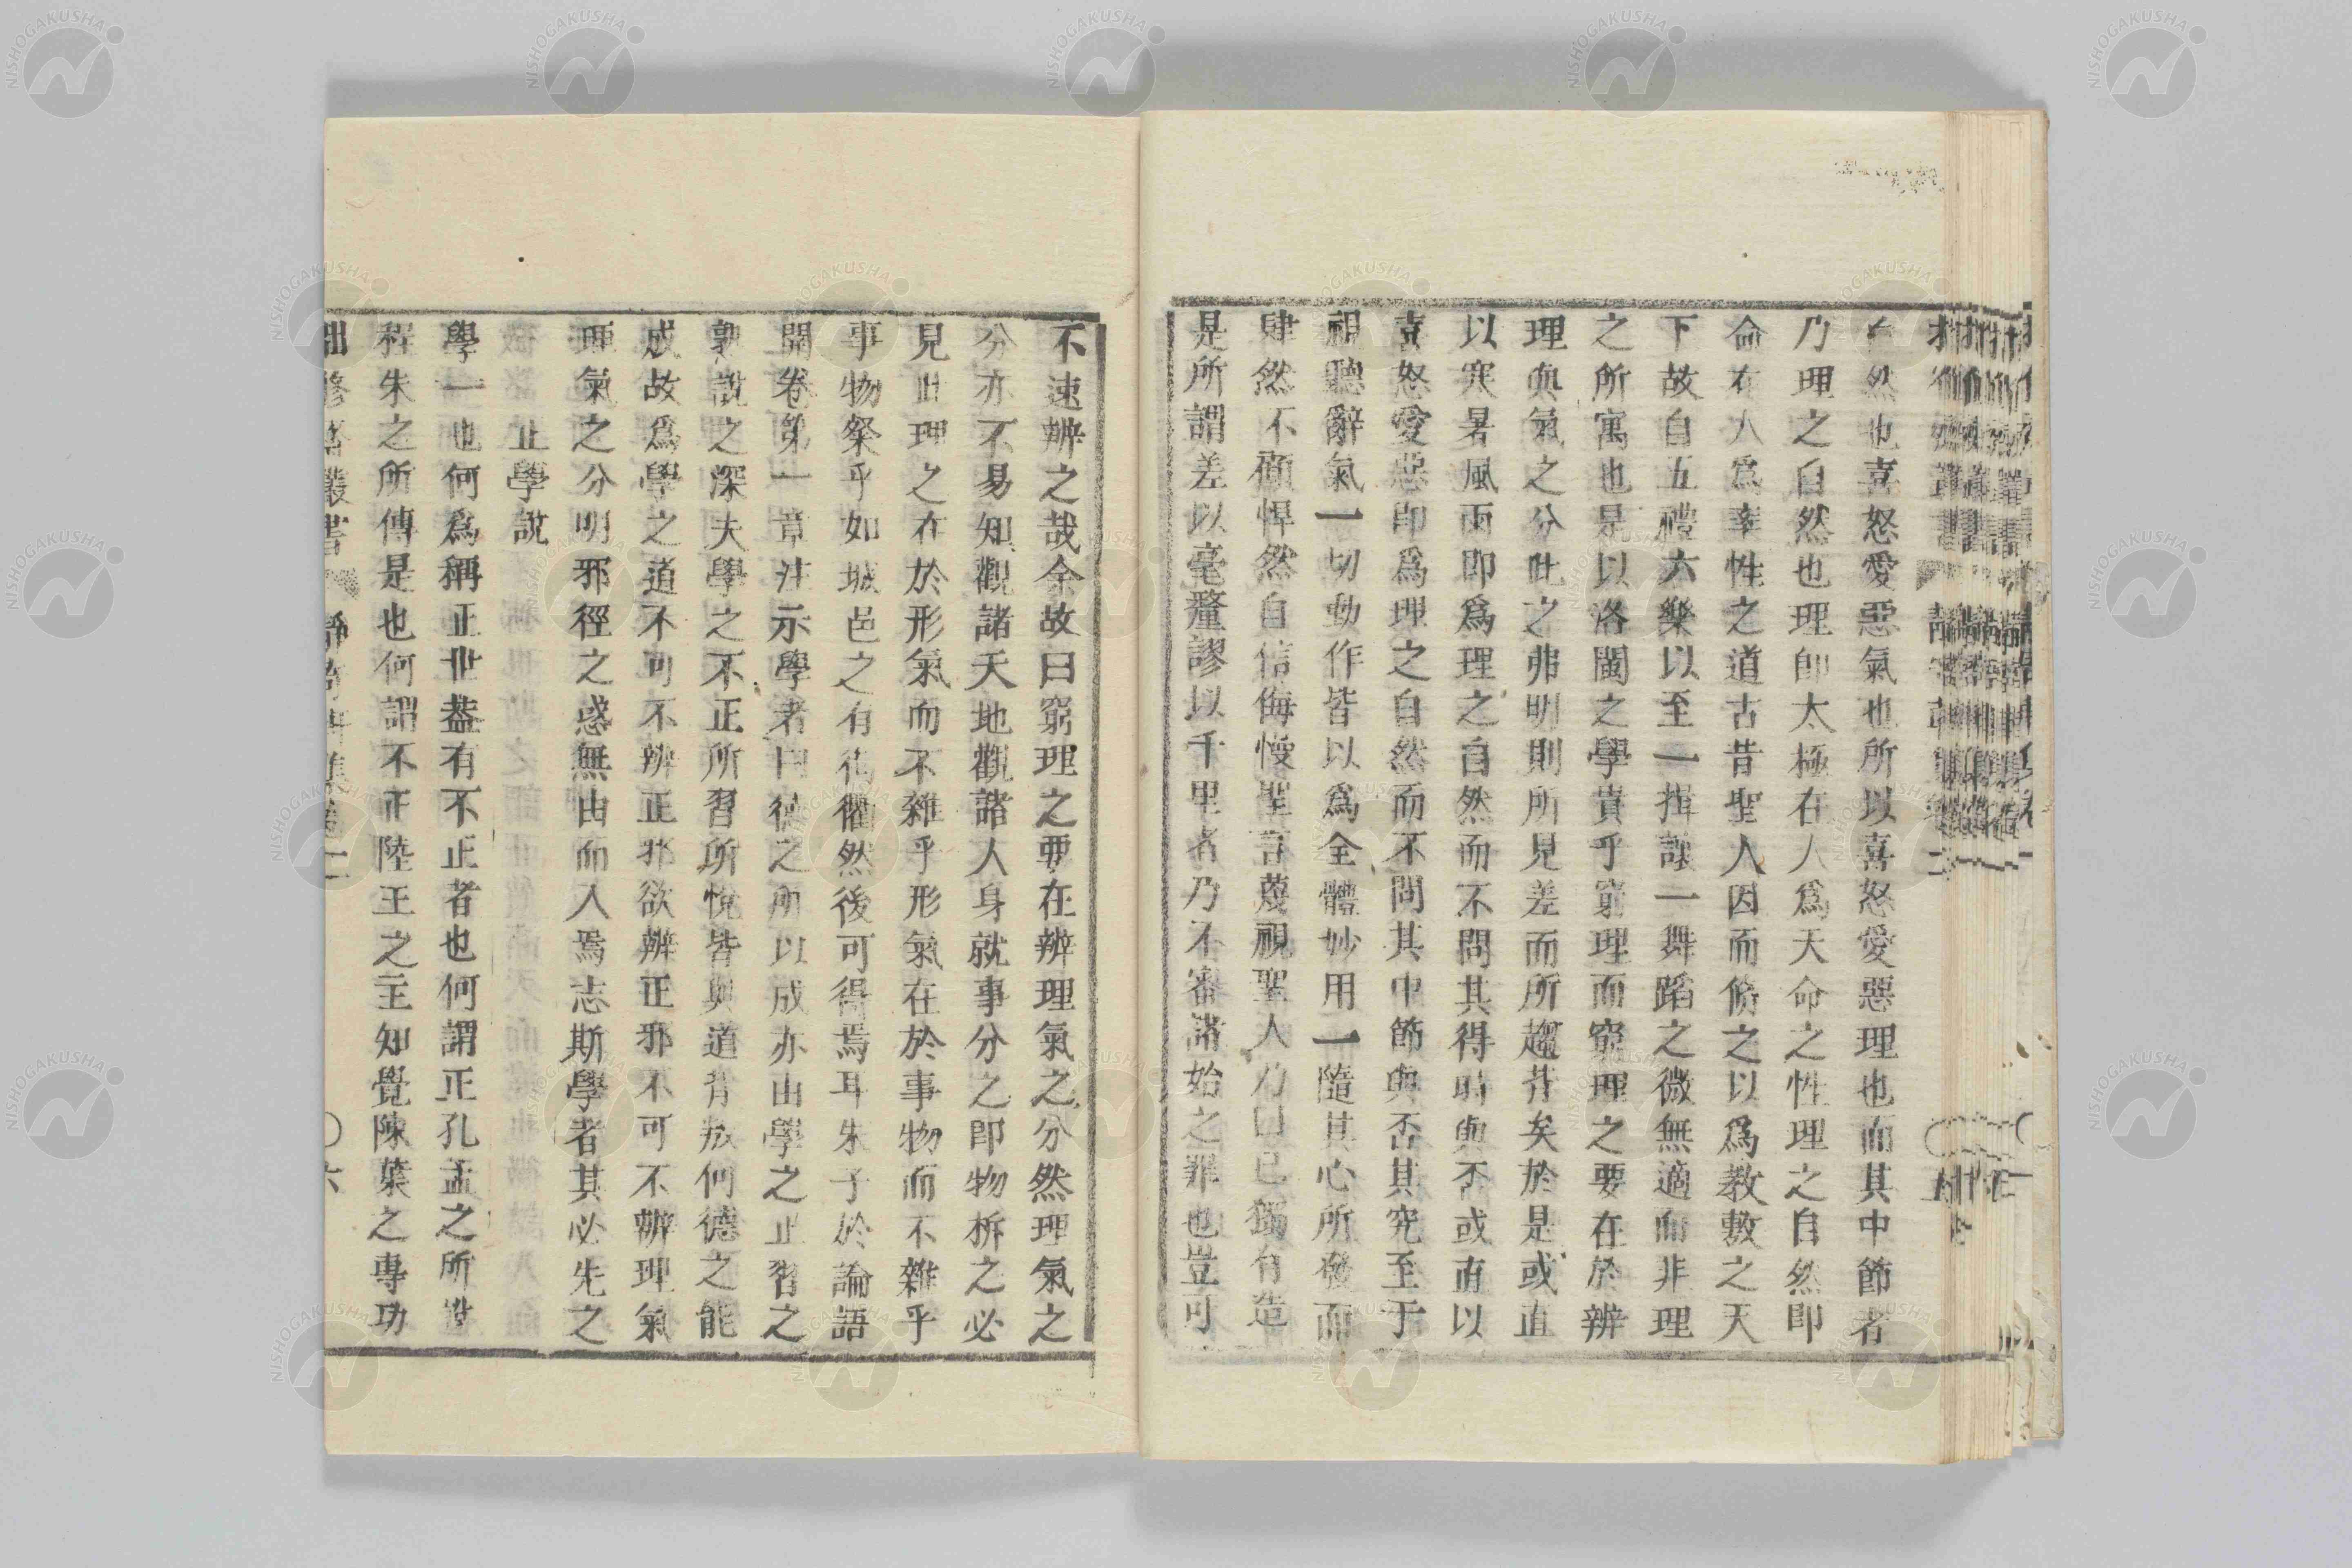 自然也喜怒愛惡氣也所以喜怒愛惡理也而其中節者
乃理之自然也理即太極在人爲天命之性理之自然即
命在人爲率性之道古昔聖人因而脩之以爲教敷之天
下故自五禮六樂以至一揖讓一舞蹈之微無適而非理
之所寓也是以洛閩之學貴乎窮理而窮理之要在於辨
理與氣之分此之弗明則所見差而所趨背矣於是或直
以寒暑風雨即爲理之自然而不問其得時與否或直以
喜怒愛惡即爲理之自然而不問其中節與否其究至于
視聽辭氣一切動作皆以爲全體妙用一隨其心所發而
肆然不顧悍然自信侮慢聖言蔑視聖人乃曰己獨有造
是所謂差以毫釐謬以千里者乃不審諸始之罪也豈可
不速辨之哉余故曰窮理之要在辨理氣之分然理氣之
分亦不易知觀諸天地觀諸人身就事分之即物析之必
見此理之在於形氣而不雜乎形氣在於事物而不雜乎
事物粲乎如城邑之有街衢然後可得焉耳朱子於論語
開卷第一章注示學者曰德之所以成亦由學之正習之
熟說之深夫學之不正所習所悅皆與道背叛何德之能
成故爲學之道不可不辨正邪欲辨正邪不可不辨理氣
理氣之分明邪徑之惑無由而入焉志斯學者其必先之
正學說
學一也何爲稱正世蓋有不正者也何謂正孔孟之所
程朱之所傳是也何謂不正陸王之主知覺陳葉之專功
叢書 靜 集卷二 〇六
NISHOGAKUSHA